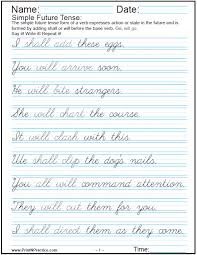 Name: Date:
Simple Future Tense:
The simple future tense form of a verb expresses action or state in the future and is
formed by adding shall or will before the base verb. Go, will go.
Say it! Write it! Repeat it!
I shall add these eggs.
You will arrive soon.
He will bite strangers.
She will chart the course.
It will clash with this.
We shall clip the dog's nails.
You all will command attention.
They will cut them for you.
I shall direct them as they come.
© www.PrintNPractice.com - 1 - Time: